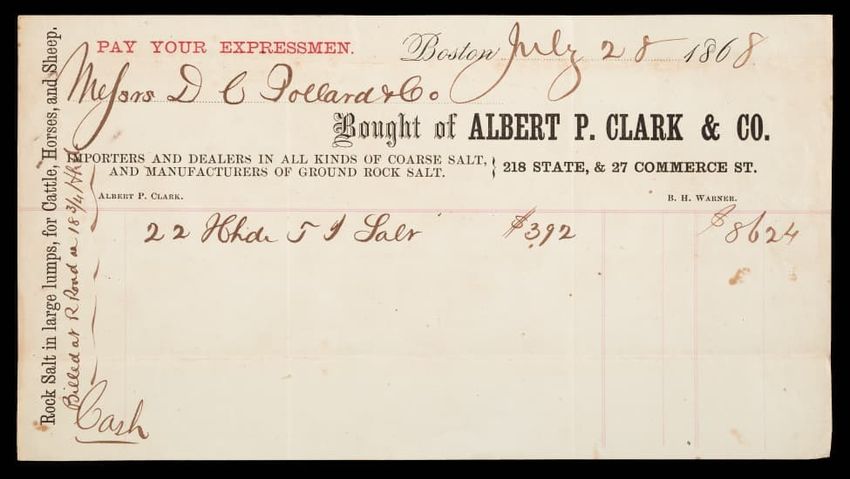 PAY YOUR EXPRESSMEN.
Boston July 28 1868
Messrs D C Pollard & Co
Bought of ALBERT P. CLARK & CO.
IMPORTERS AND DEALERS IN ALL KINDS OF COARSE SALT,
AND MANUFACTURERS OF GROUND ROCK SALT.
218 STATE, & 27 COMMERCE ST.
ALBERT P. CLARK. B. H. WARNER.
22 Hhds T I Salt $3.92 $86 24
Cash
Rock Salt in large lumps, for Cattle, Horses, and Sheep.
Billed at R Road as 18 3/4 Hhds